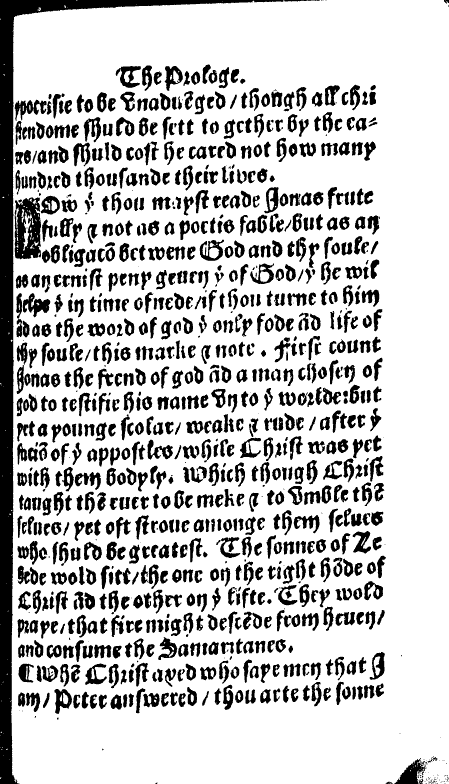 The Prologe.
ypocrisie to be vnadvẽged / though all chri
stendome shuld be sett to gether by the ea-
res/and shuld cost he cared not how many
hundred thousande their lives.
NOw ẙ thou mayst reade Jonas frute
fully ⁊ not as a poetis fable/but as an
obligaciõ betwene God and thy soule/
as an ernist peny geuen ẙ of God/ẙ he wil
helpe ẙ in time of nede/if thou turne to him
ãd as the word of god ẙ only fode ãd life of
thy soule/this marke ⁊ note . First count
Jonas the frend of god ãd a man chosen of
god to testifie his name vn to ẙ worlde:but
yet a younge scolar/ weake ⁊ rude / after ẙ
faciõ of ẙ appostles/while Christ was yet
with them bodyly. Which though Christ
taught thẽ euer to be meke ⁊ to vmble thẽ
selues/ yet oft stroue amonge them selues
who shuld be greatest. The sonnes of Ze
bede wold sitt/the one on the right hõde of
Christ ãd the other on ẙ lifte. They wold
praye/that fire might descẽde from heuen/
and consume the Samaritanes.
¶Whẽ Christ axed who saye men that J
am/ Peter answered / thou arte the sonne